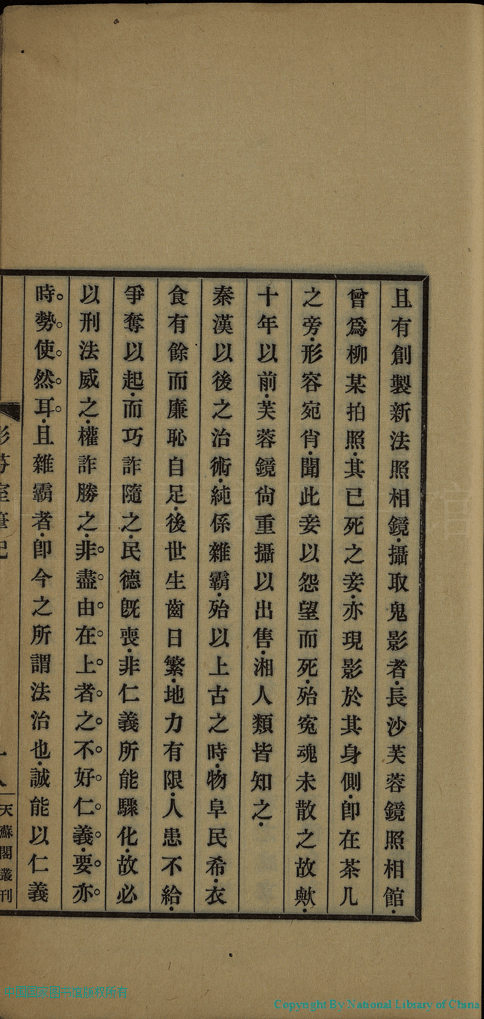 且有創製新法照相鏡·攝取鬼影者·長沙芙蓉鏡照相館·
曾爲柳某拍照·其已死之妾·亦現影於其身側·卽在茶几
之旁·形容宛肖·聞此妾以怨望而死·殆寃魂未散之故歟·
十年以前·芙蓉鏡尙重攝以出售·湘人類皆知之·
秦漢以後之治術·純係雜霸·殆以上古之時·物阜民希·衣
食有餘而廉恥自足·後世生齒日繁·地力有限·人患不給·
爭奪以起·而巧詐隨之·民德旣喪·非仁義所能驟化·故必
以刑法威之·權詐勝之·非盡由在上者之不好仁義·要亦
時勢使然耳·且雜霸者·卽今之所謂法治也·誠能以仁義
室筆記
天蘇閣叢刊
Copyright By National Library of China